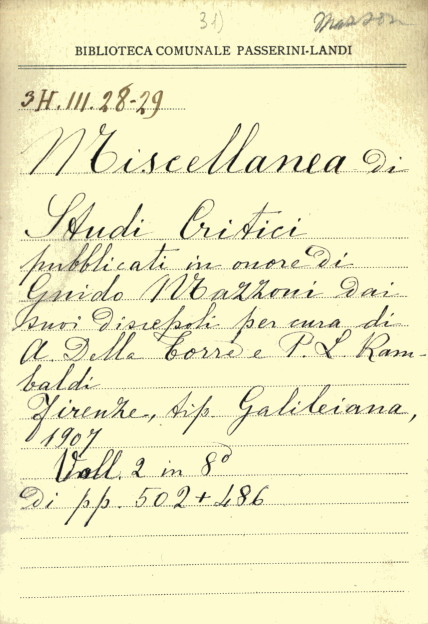 31)
BIBLIOTECA COMUNALE PASSERINI-LANDI
3H.III.28-29
Miscellanea di
Studi Critici
pubblicati in onore di
Guido Mazzoni dai
suoi discepoli per cura di
A. Della Torre e P. L. Ram-
baldi
Firenze, tip. Galileiana,
1907
Voll. 2 in 8°
di pp. 502+486